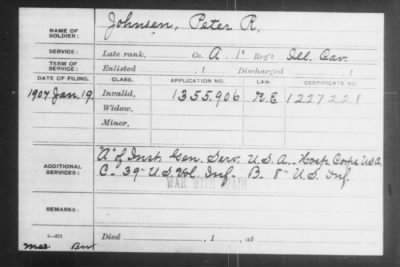 NAME OF SOLDIER: Johnsen, Peter R.
SERVICE: Late rank, Co. A, 1st Reg't Ill. Cav.
TERM OF SERVICE: Enlisted , 1 Discharged , 1
DATE OF FILING. CLASS. APPLICATION NO. LAW. CERTIFICATE NO.
1907 Jan. 19. Invalid, 1355.906 R.E 1227221
Widow,
Minor,
ADDITIONAL SERVICES: "A" of Inst. Gen. Serv. U.S.A. - Hosp. Corps U.S.A.
C - 39" U.S. Vol. Inf. - B. 8" U.S. Inf.
WAR WITH SPAIN
REMARKS:
Died , 1 , at